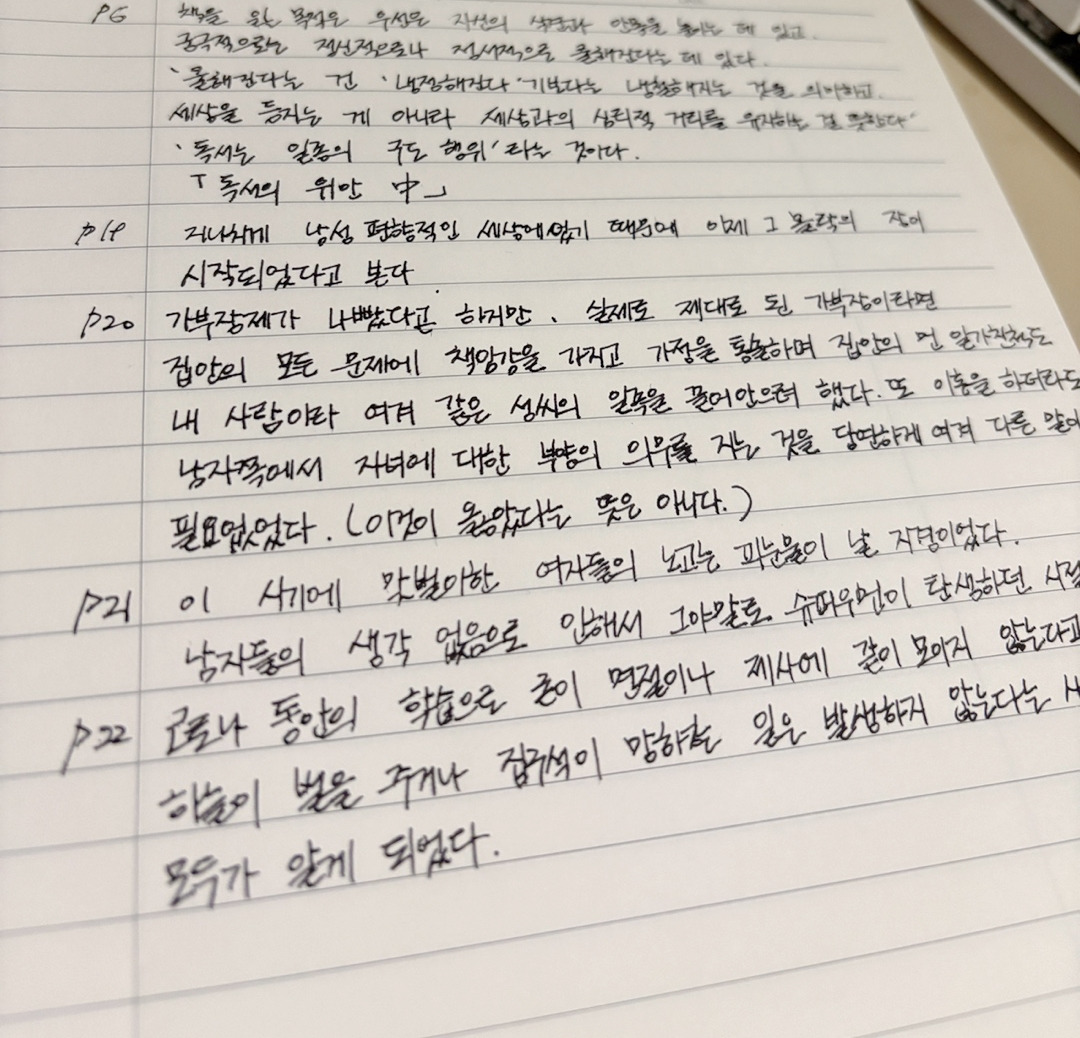 p6 책을 읽는 목적은 우선은 자신의 식견과 안목을 높이는 데 있고.
궁극적으로는 정신적으로나 정서적으로 올해진다는 데 있다.
'올해진다는 건 '냉정해진다'기보다는 냉철해지는 것을 의미하고.
세상을 등지는 게 아니라 세상과의 심리적 거리를 유지하는 걸 뜻한다"
'독서는 일종의 구도 행위'라는 것이다.
「독서의 위안 中」
p19 지나치게 남성 편향적인 세상에 있기 때문에 이제 그 몰락의 장이
시작되었다고 본다
p20 가부장제가 나빴다고 하지만. 실제로 제대로 된 가부장이라면
집안의 모든 문제에 책임감을 가지고 가정을 통솔하며 집안의 먼 일가친척도
내 사람이라 여겨 같은 성씨의 일족을 끌어안으려 했다. 또 이혼을 하더라도
남자쪽에서 자녀에 대한 부양의 의무를 지는 것을 당연하게 여겨 다른 말이
필요없었다. (이것이 옳았다는 뜻은 아니다.)
p21 이 시기에 맞벌이한 여자들의 노고는 피눈물이 날 지경이었다.
남자들의 생각 없음으로 인해서 그야말로 슈퍼우먼이 탄생하던 시절
p22 코로나 동안의 학습으로 굳이 명절이나 제사에 같이 모이지 않는다고
하늘이 벌을 주거나 집구석이 망하는 일은 발생하지 않는다는
모두가 알게 되었다.